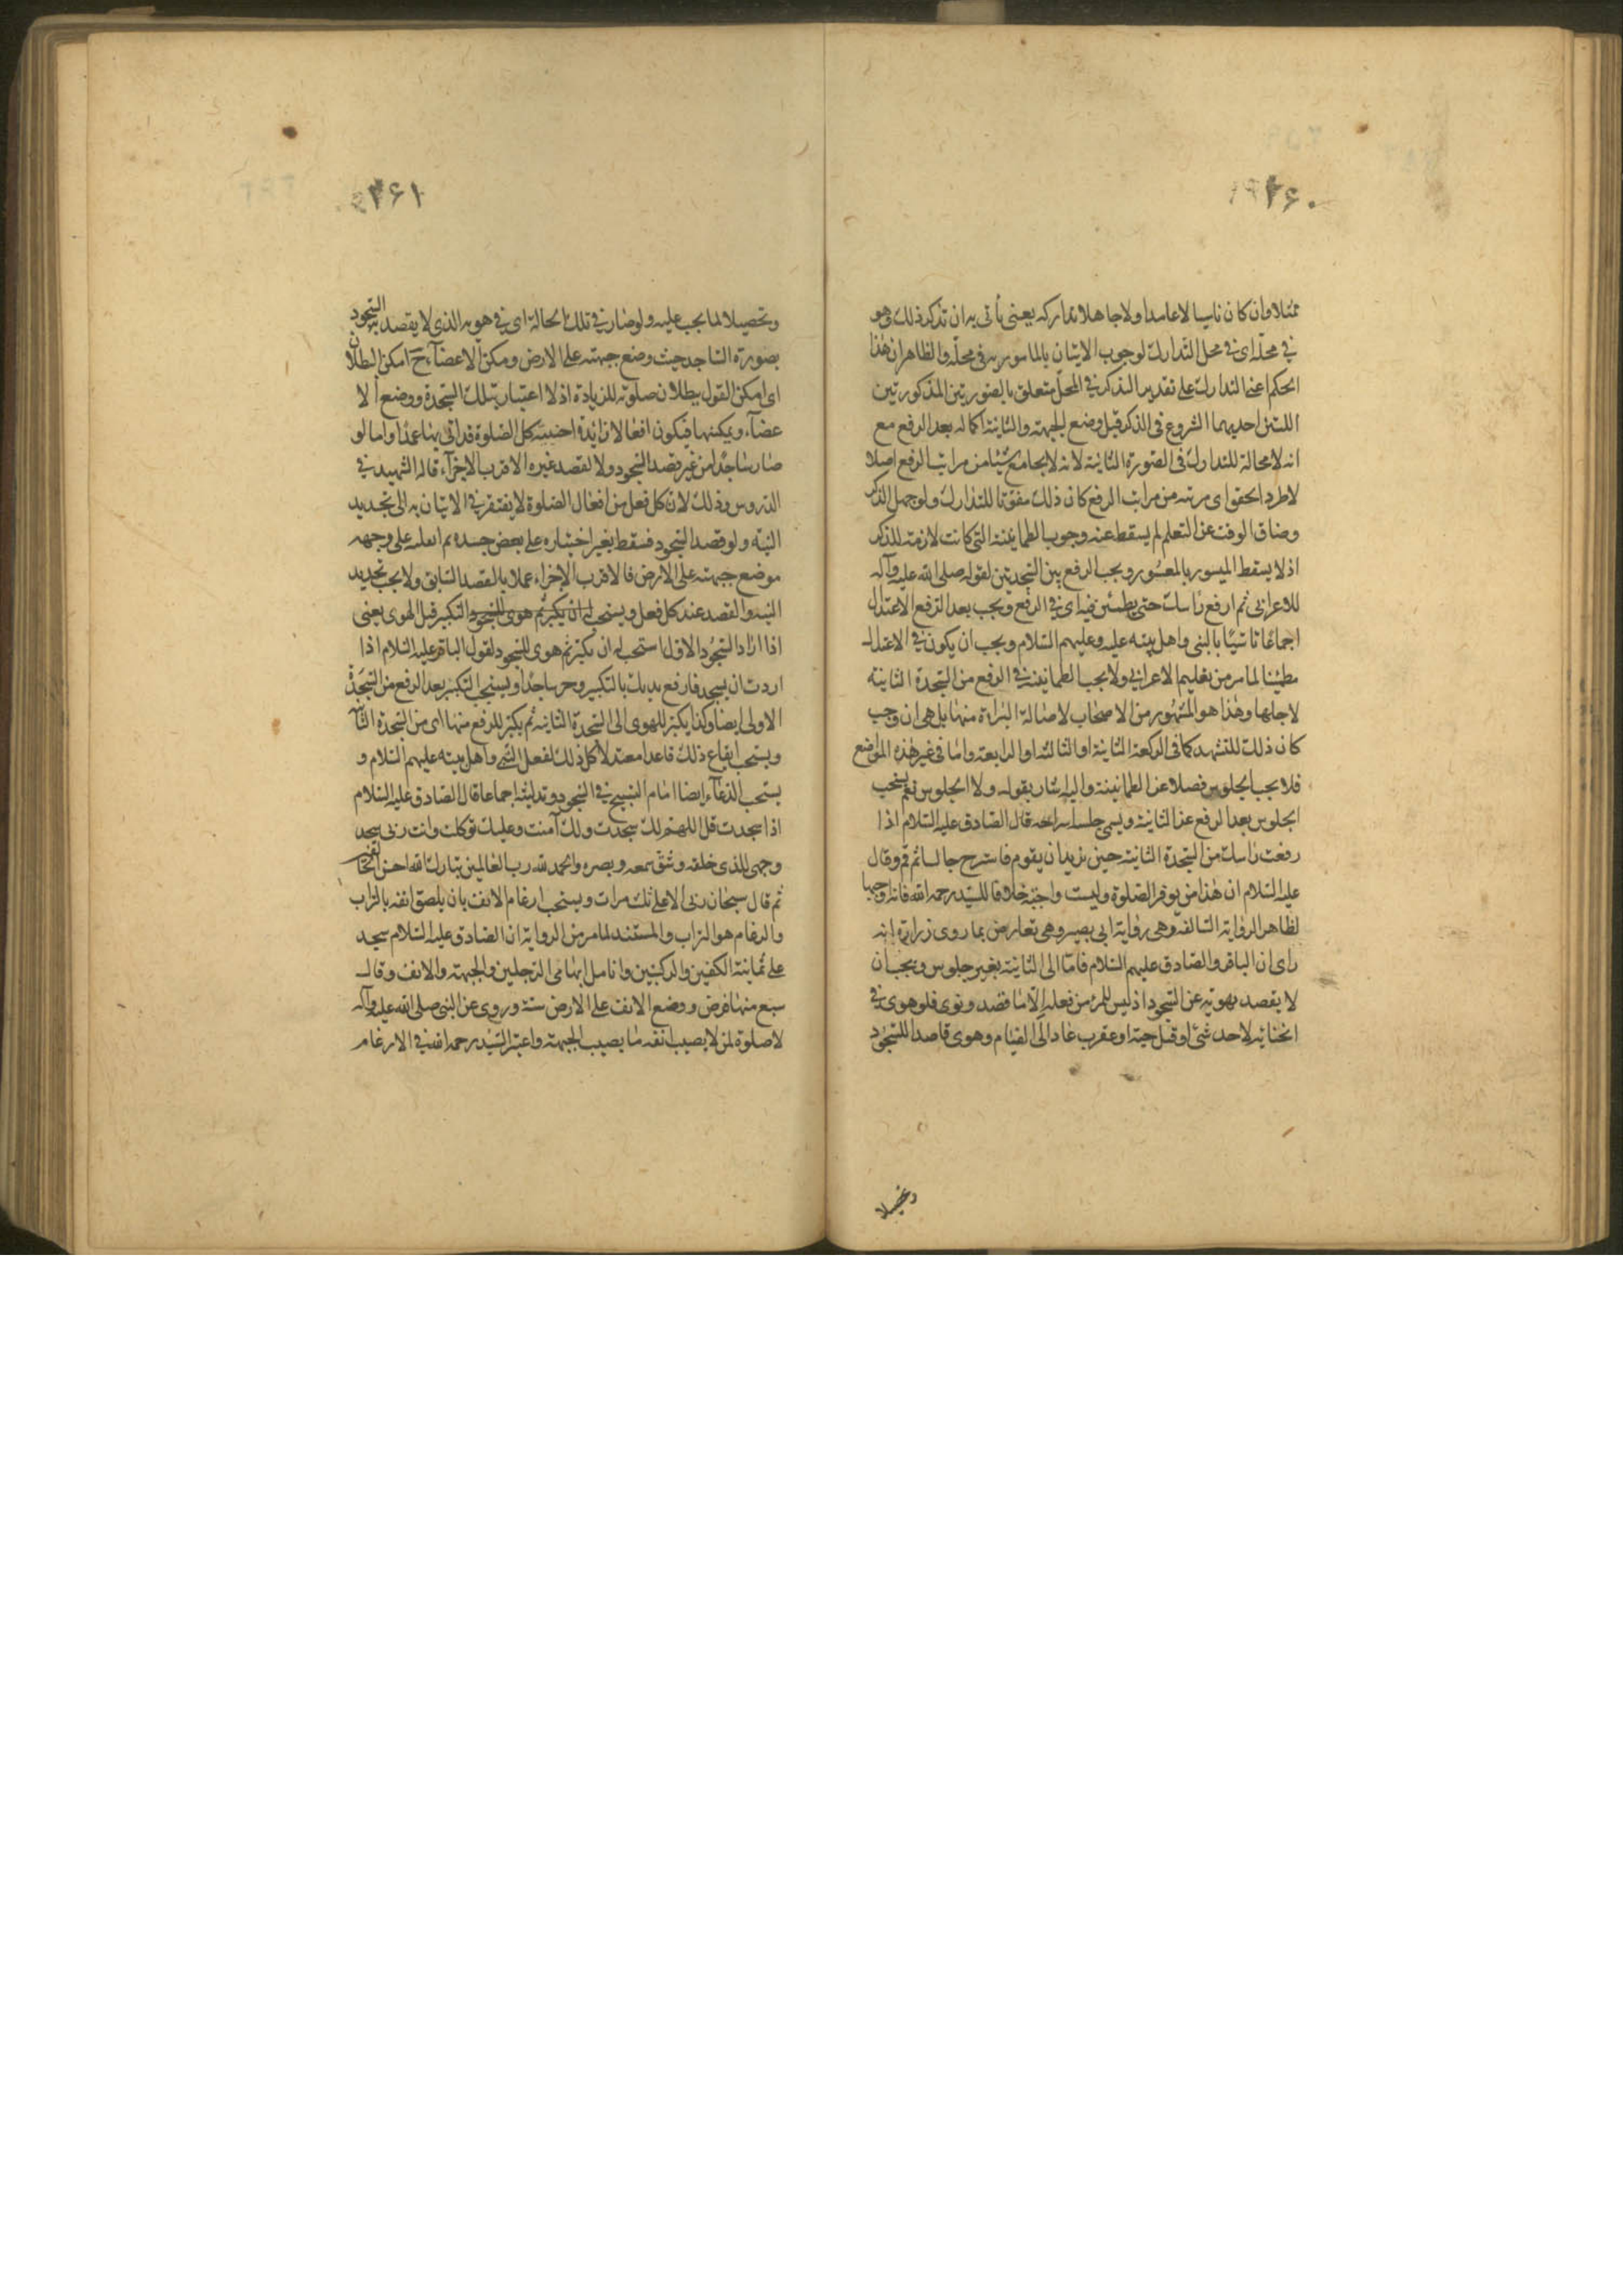 ۲۶۰
ممتثلا وان كان ناسيا لا عامدا ولا جاهلا تداركه يعنى يأتى به ان تذكر ذلك وهو
في محلّه اى في محل التدارك لوجوب الاتيان بالمأمور به فى محلّه والظاهر ان هذا
الحكم اعنى التدارك على تقدير التذكر في المحل متعلق بالصورتين المذكورتين
اللتين احديهما الشروع فى الذكر قبل وضع الجبهة والثانية اكماله بعد الرفع مع
انه لا محالة للتدارك فى الصورة الثانية لانه لا يجامع شيئا من مراتب الرفع اصلا
لاطراد الحق واى مرتبة من مراتب الرفع كان ذلك مفوّتا للتدارك ولو جهل الذكر
وضاق الوقت عن التعلم لم يسقط عنه وجوب الطمانينة التى كانت لازمة للذكر
اذ لا يسقط الميسور بالمعسور ويجب الرفع بين السجدتين لقوله صلى الله عليه وآله
للاعرابى ثم ارفع راسك حتى يطمئن فيه اى في الرفع ويجب بعد الرفع الاعتدال
اجماعا تاسيّا بالنبى واهل بيته عليه وعليهم السلام ويجب ان يكون في الاعتدال
مطئنا لما مر من تعليم الاعرابي ولا يجب الطمانينة في الرفع من السجدة الثانية
لاجلها وهذا هو المشهور من الاصحاب لاصالة البراءة منها بل هى ان وجب
كان ذلك للتشهد كما فى الركعة الثانية او الثالثة او الرابعة واما فى غير هذه المواضع
فلا يجب الجلوس فضلا عن الطمانينة واليه اشار بقوله ولا الجلوس نعم يستحب
الجلوس بعد الرفع عن الثانية ويسمى جلسة استراحة قال الصادق عليه السلام اذا
رفعت راسك من السجدة الثانية حين تريد ان يقوم فاسترح جالسا ثم قم وقال
عليه السلام ان هذا من توقير الصلوة وليست واجبة خلافا للسيد رحمه الله فانه اوجبها
لظاهر الرواية السالفة وهى رواية ابى بصير وهى تعارض بما روى زرارة انه
راى ان الباقر والصادق عليهم السلام قاما الى الثانية بغير جلوس ويجب ان
لا يقصد بهويّه عن السجود اذ ليس للمرء من فعله الّا ما قصد ونوى فلو هوى في
انحنائه لاحد شئ او قتل حية او عقرب عاد الى القيام وهوى قاصدا للسجود
وتحصيلا
۲۶۱
وتحصيلا لما يجب عليه ولو صار في تلك الحالة اى في هويه الذى لا يقصد به السجود
بصورة الساجد حيث وضع جبهته على الارض ومكن الاعضاء ح امكن البطلان
اى امكن القول ببطلان صلوته للزيادة اذ لا اعتبار بتلك السجدة ووضع الا
عضاء وتمكينها فيكون افعالا زائدة اجنبية كل الصلوة قد اتى بها عمدا واما لو
صار ساجدًا من غير قصد السجود ولا لقصد غيره الاقرب الاجزاء قاله الشهيد في
الدروس وذلك لان كل فعل من افعال الصلوة لا يفتقر في الاتيان به الى تجديد
النية ولو قصد السجود فسقط بغير اختياره على بعض جسده ثم انقلب على وجهه
موضع جبهته على الارض فالاقرب الاجزاء عملا بالقصد السابق ولا يجب تجديد
النية والقصد عند كل فعل ويستحب له ان يكبر ثم هوى للسجود والتكبير قبل الهوى يعنى
اذا اراد السجود الاول استحب له ان يكبر ثم هوى للسجود لقول الباقر عليه السلام اذا
اردت ان يسجد فارفع يديك بالتكبير وخر ساجدًا ويستحب التكبير بعد الرفع من السجدة
الاولى ايضا وكذا يكبر للهوى الى السجدة الثانية ثم يكبر للرفع منها اى من السجدة الثا
ويستحب ايقاع ذلك قاعدا معتدلا كل ذلك لفعل النبى واهل بيته عليهم السلام و
يستحب الدعاء ايضا امام التسبيح في السجود وتدليته اجماعا قال الصادق عليه السلام
اذا سجدت قل اللهم لك سجدت ولك آمنت وعليك توكلت وانت ربى سجد
وجهى للذى خلقه وشق سمعه وبصره والحمد لله رب العالمين تبارك الله احسن الخالقين
ثم قال سبحان ربى الاعلى ثلث مرات ويستحب ارغام الانف بان يلصق انفه بالتراب
والرغام هو التراب والمستند لما مر من الرواية ان الصادق عليه السلام سجد
على ثمانية الكفين والركبتين وانامل ابهامى الرجلين والجبهة والانف وقال
سبع منها فرض ووضع الانف على الارض سنة وروى عن النبى صلى الله عليه وآله
لا صلوة لمن لا يصيب انفه ما يصيب الجبهة واعتبر السيد رحمه الله في الارغام